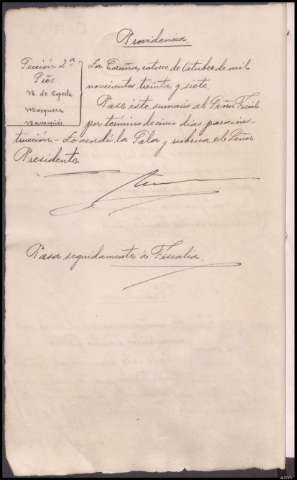 Providencia
Sección 2ª
Pías
Mosquera
La Coruña, catorce de Octubre de mil
novecientos treinta y siete.
Pase este sumario al Señor Fiscal
por término de cinco días para ins-
trucción.- Lo acordó la Sala y rubrica el Señor
Presidente.
Pasa seguidamente a Fiscalía